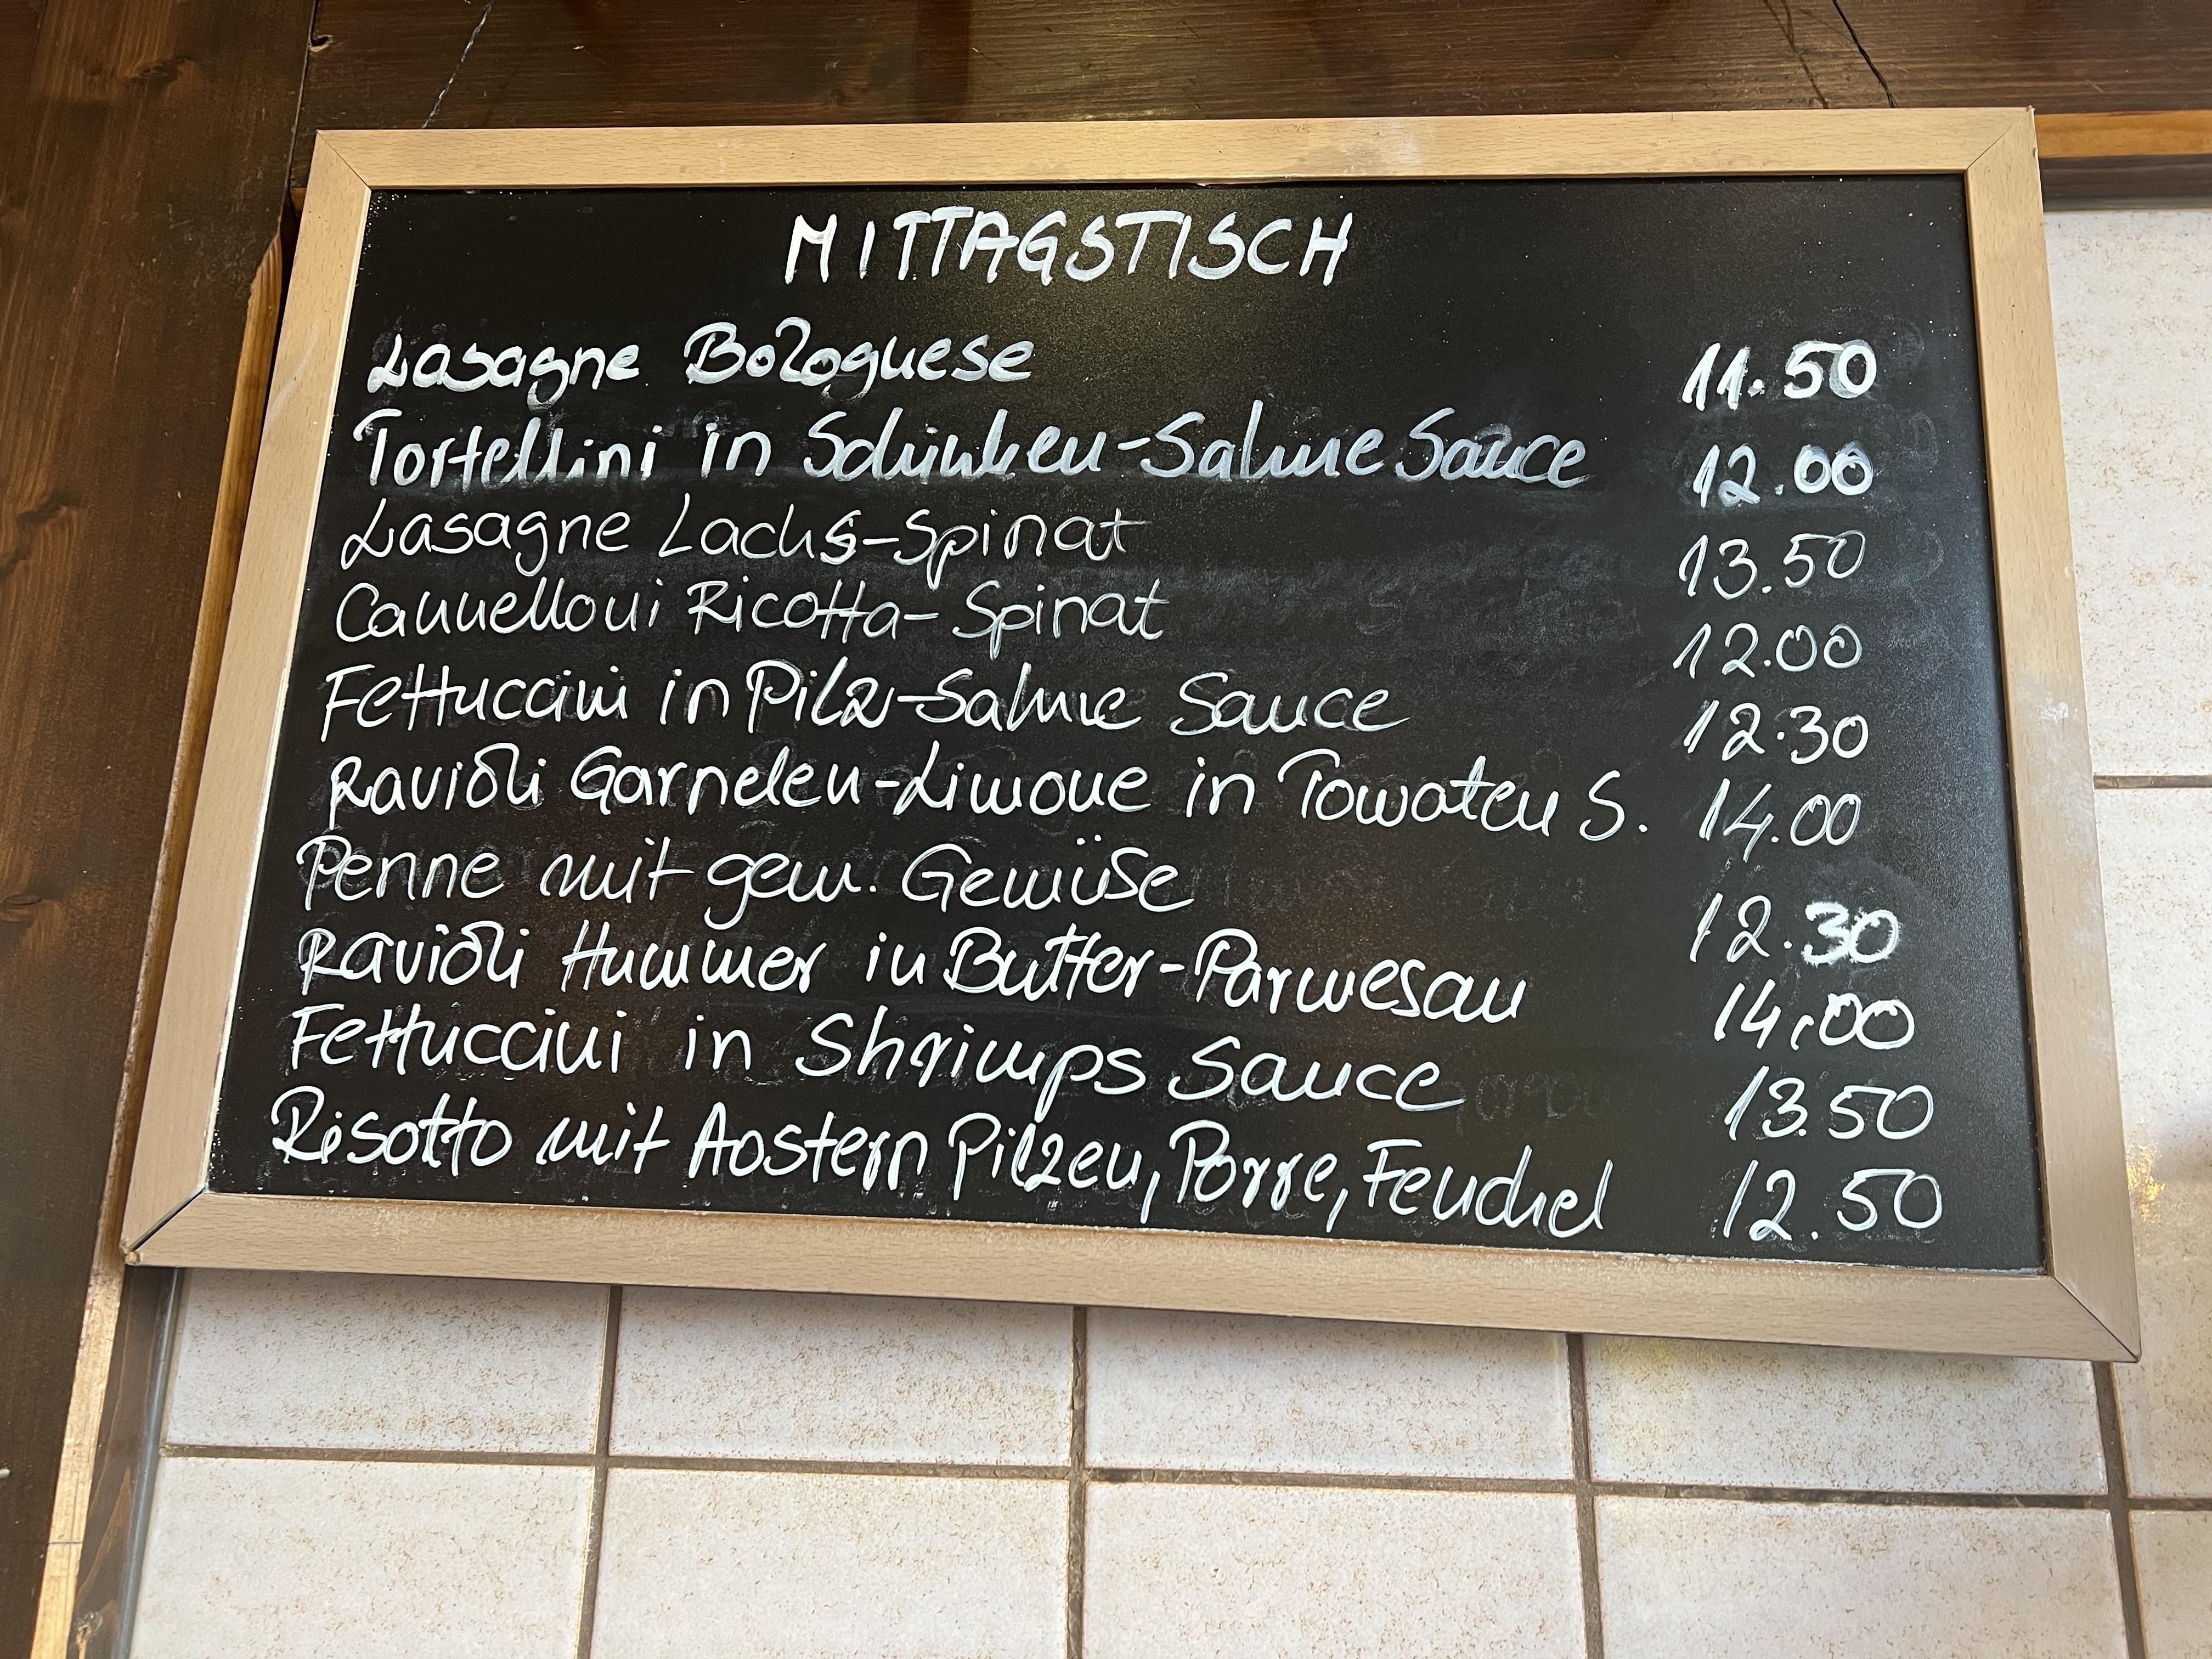 MITTAGSTISCH
Lasagne Bolognese 11.50
Tortellini in Schinken-Sahne Sauce 12.00
Lasagne Lachs-Spinat 13.50
Cannelloni Ricotta-Spinat 12.00
Fettuccini in Pilz-Sahne Sauce 12.30
Ravioli Garnelen-Limone in Tomaten S. 14.00
Penne mit gem. Gemüse 12.30
Ravioli Hummer in Butter-Parmesan 14,00
Fettuccini in Shrimps Sauce 13.50
Risotto mit Aostern Pilzen, Porre, Fenchel 12.50